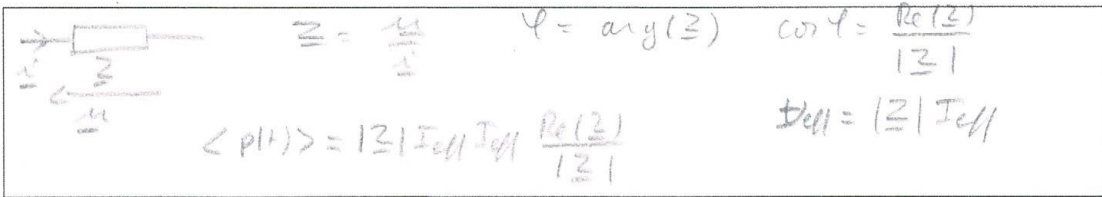 Z = u/i    φ = arg(Z)    cos φ = Re(Z)/|Z|
i
Z
u
U_eff = |Z| I_eff
<p(t)> = |Z| I_eff I_eff Re(Z)/|Z|